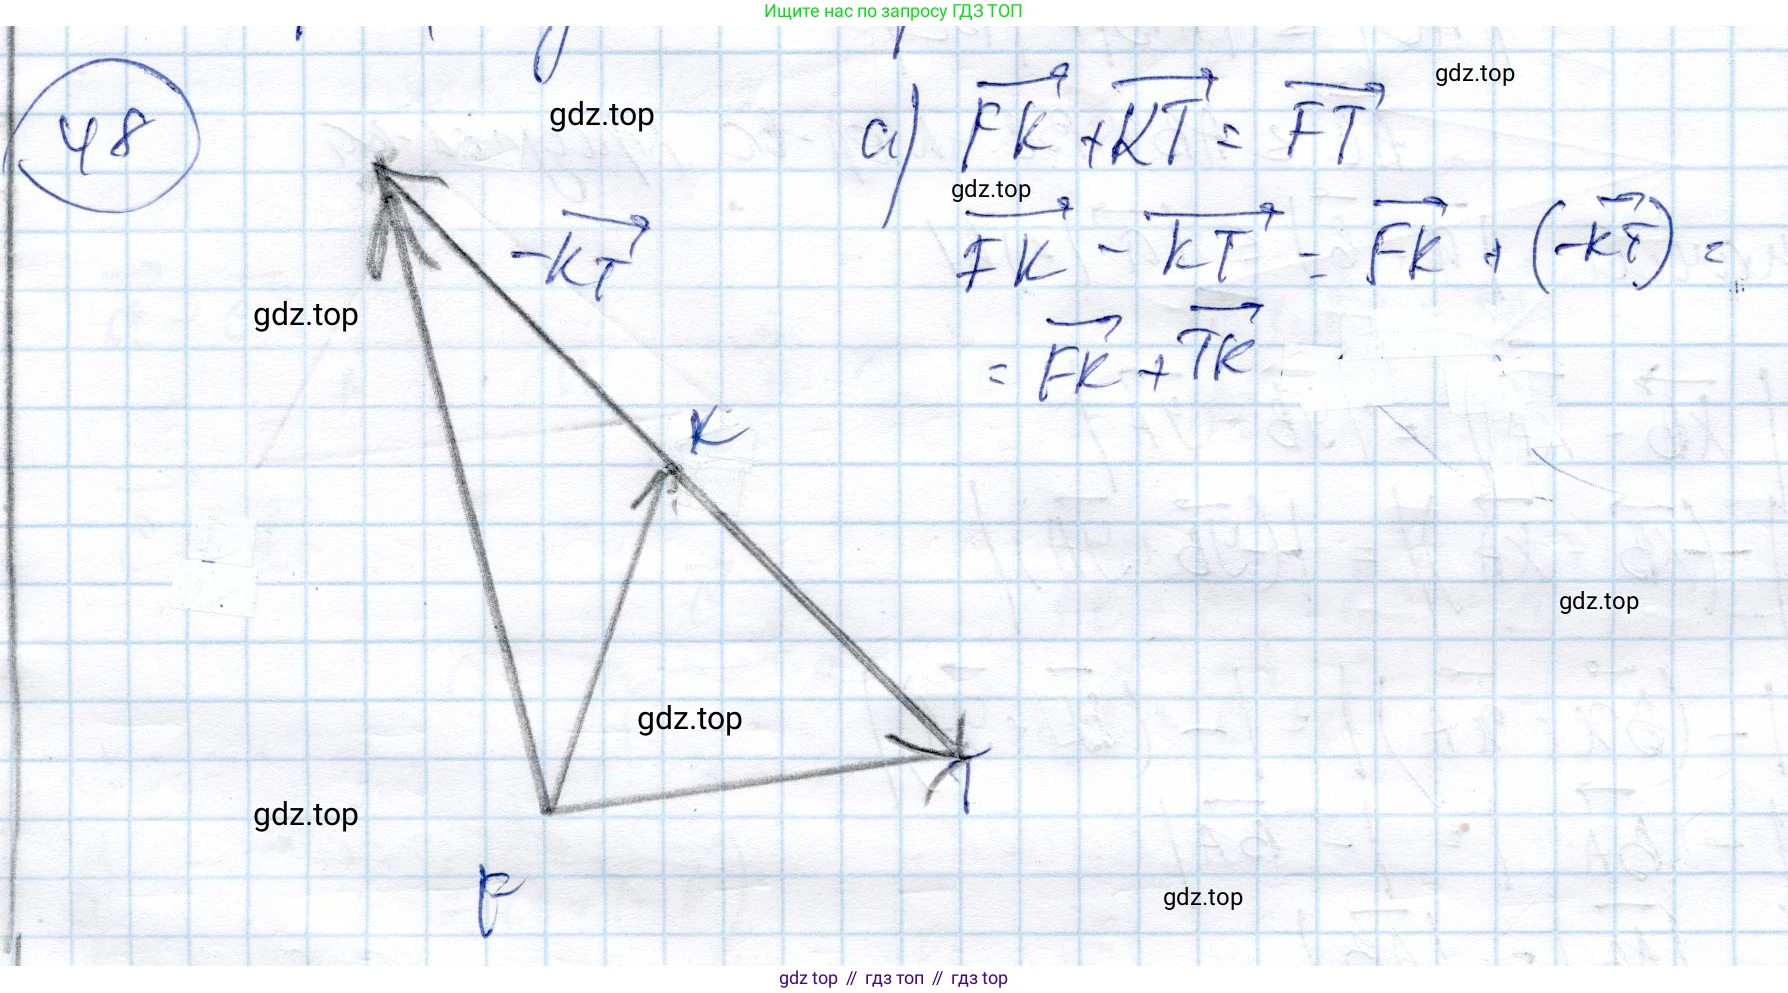 Ищите нас по запросу ГДЗ ТОП
48
gdz.top
gdz.top
а) FK + KT = FT
gdz.top
FK - KT = FK + (-KT) =
-KT
= FK + TK
gdz.top
K
gdz.top
gdz.top
T
gdz.top
F
gdz.top
gdz top // гдз топ // гдз top